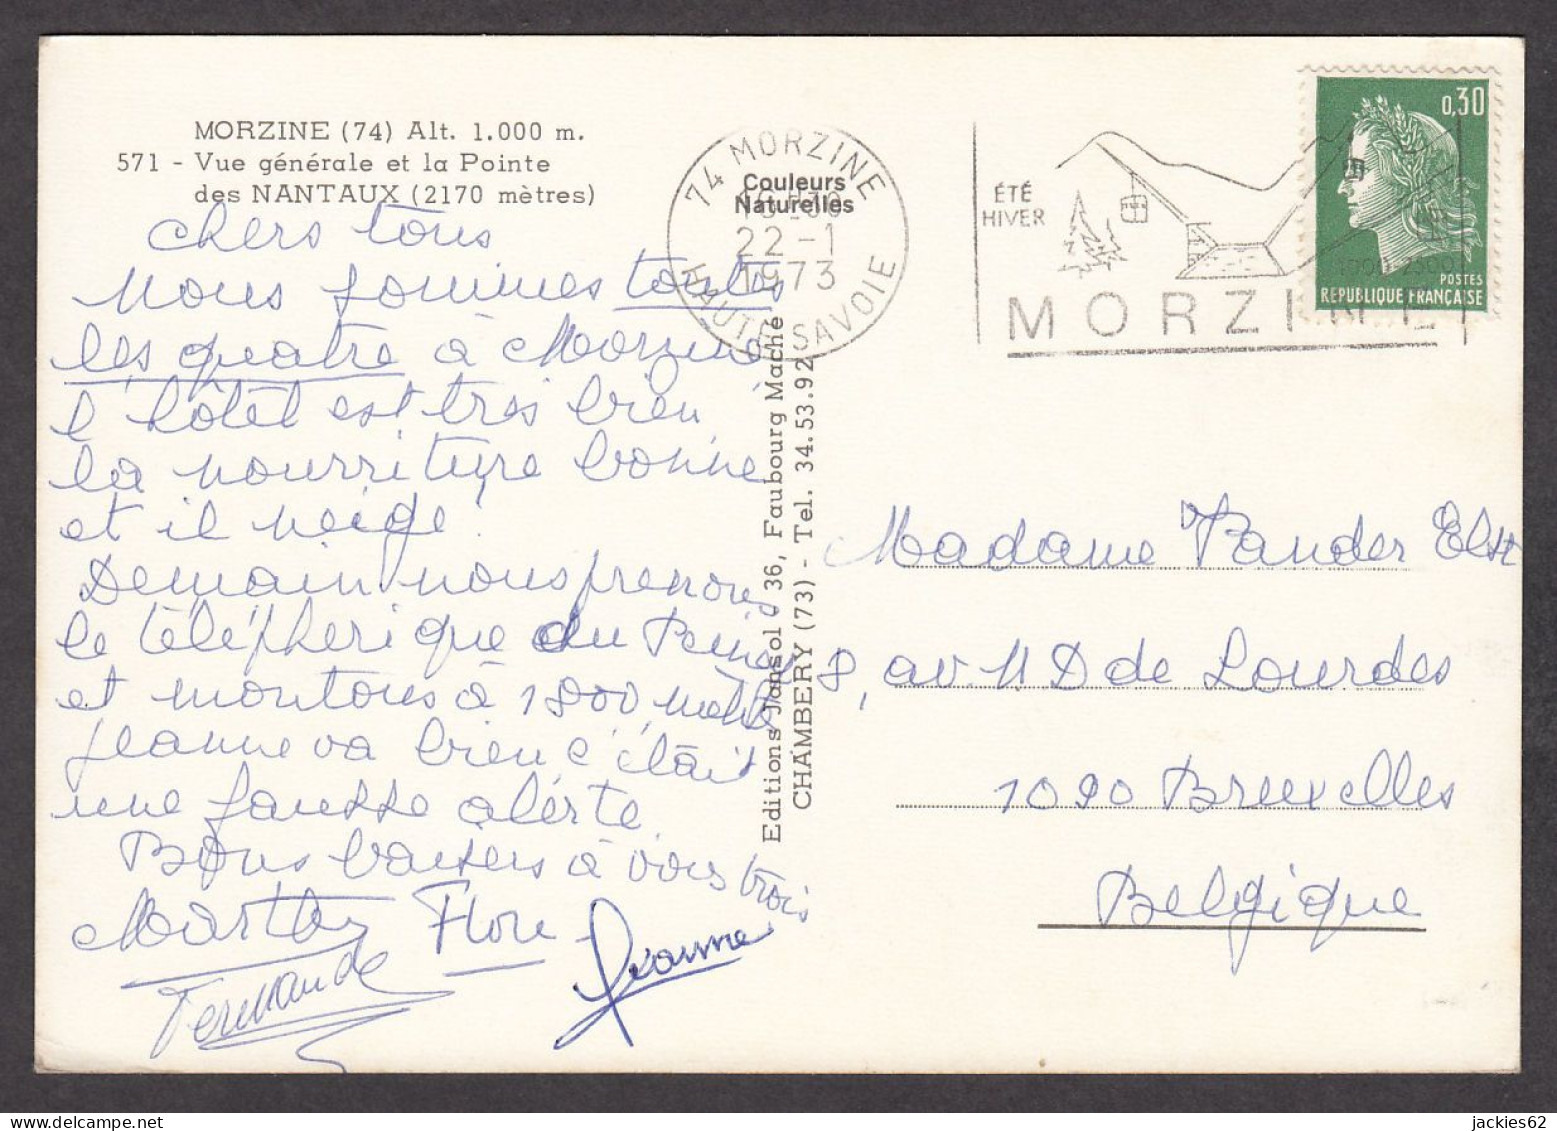 MORZINE (74) Alt. 1.000 m.
571 - Vue générale et la Pointe
des NANTAUX (2170 mètres)
Couleurs
Naturelles
74 MORZINE
22 - 1
1973
HAUTE-SAVOIE
ÉTÉ
HIVER
MORZINE
0,30
POSTES
REPUBLIQUE FRANÇAISE
Chers tous
Nous sommes toutes
les quatre à Morzine
l'hôtel est très bien
la nourriture bonne
et il neige.
Demain nous prenons
le téléphérique du
et montons à 1800 mètres
Jeanne va bien c'était
une fausse alerte.
Bons baisers à vous trois
Martha Flore Jeanne
Fernande
Editions Jansol - 36, Faubourg Maché
CHAMBERY (73) - Tel. 34.53.92
Madame Vander Elst
8, av N D de Lourdes
1090 Bruxelles
Belgique
jackies62